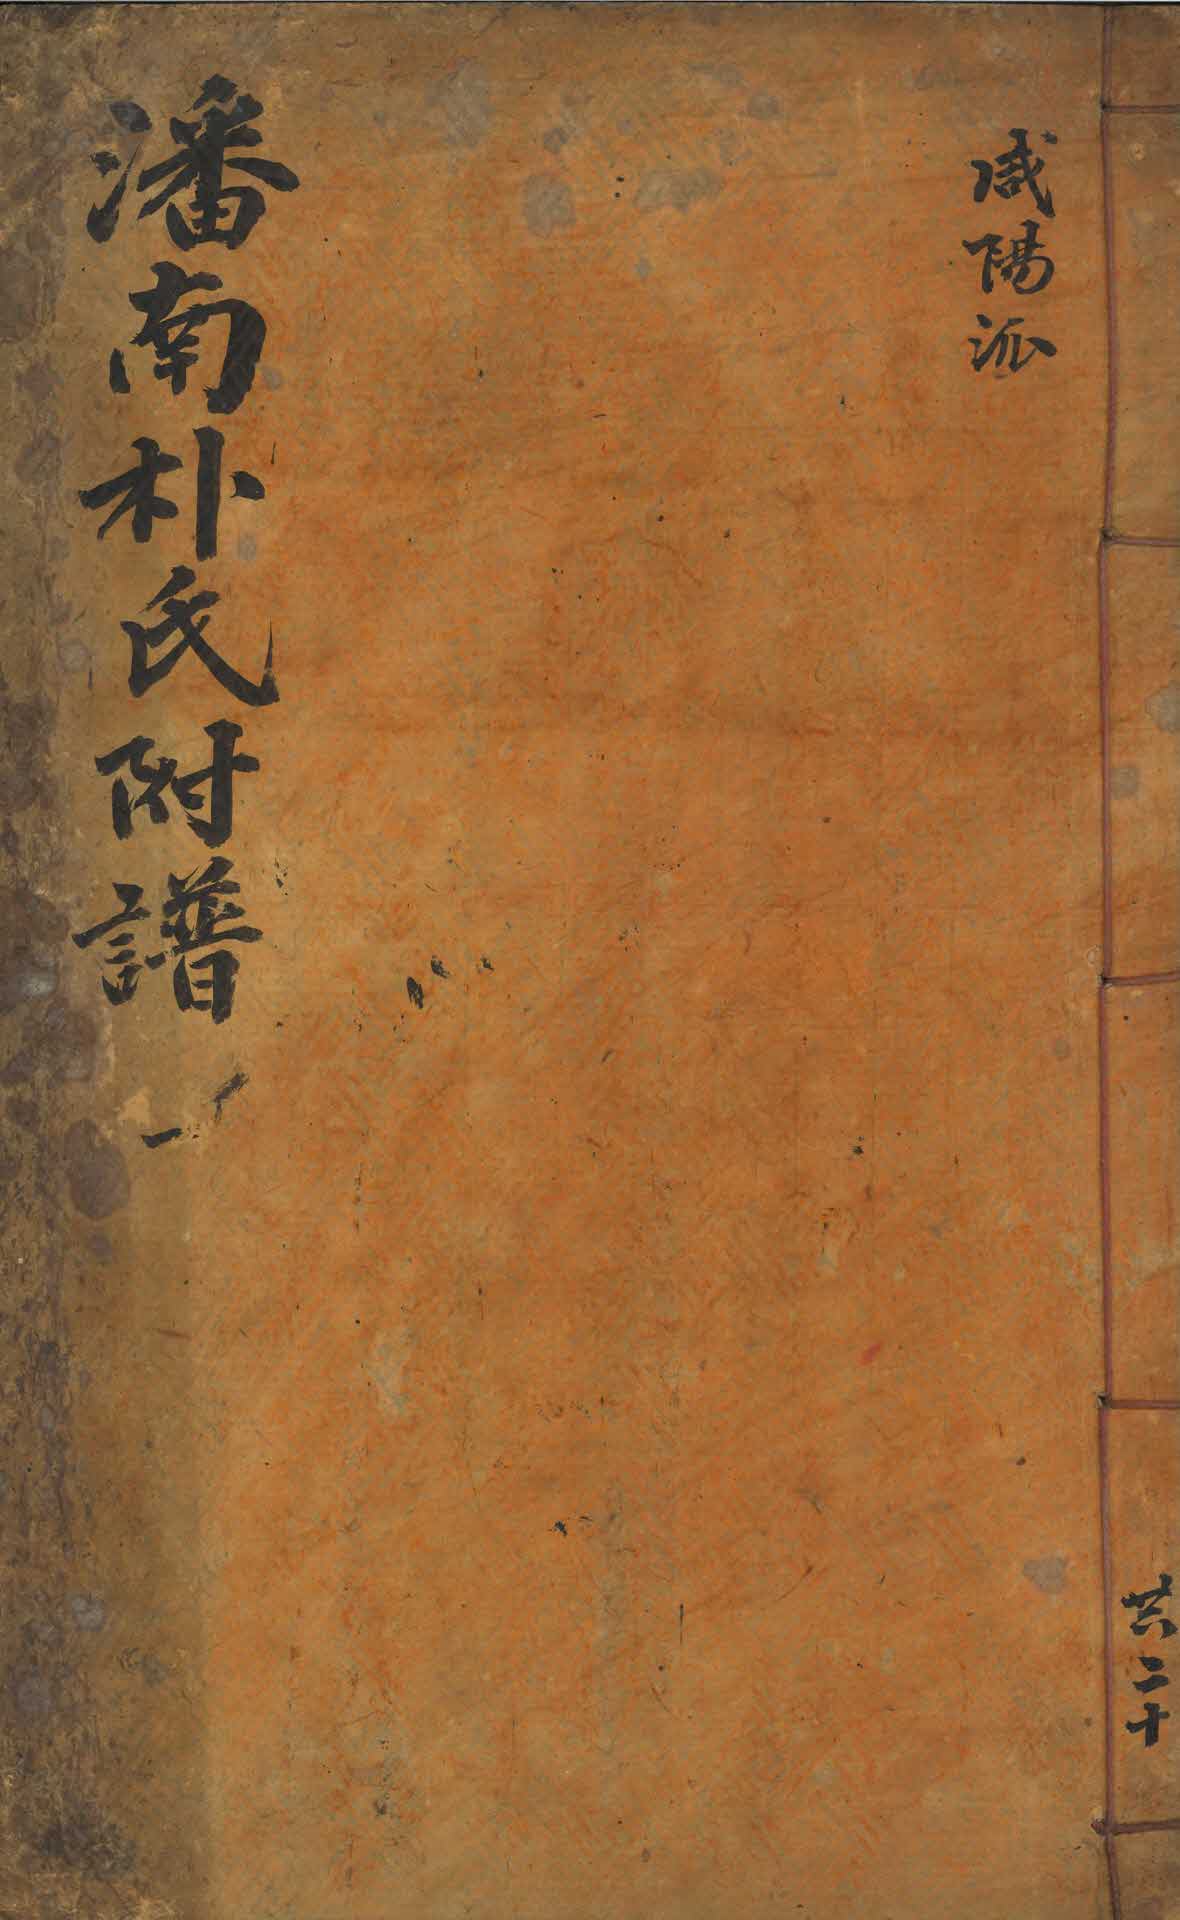 咸陽派
潘南朴氏附譜
共二十